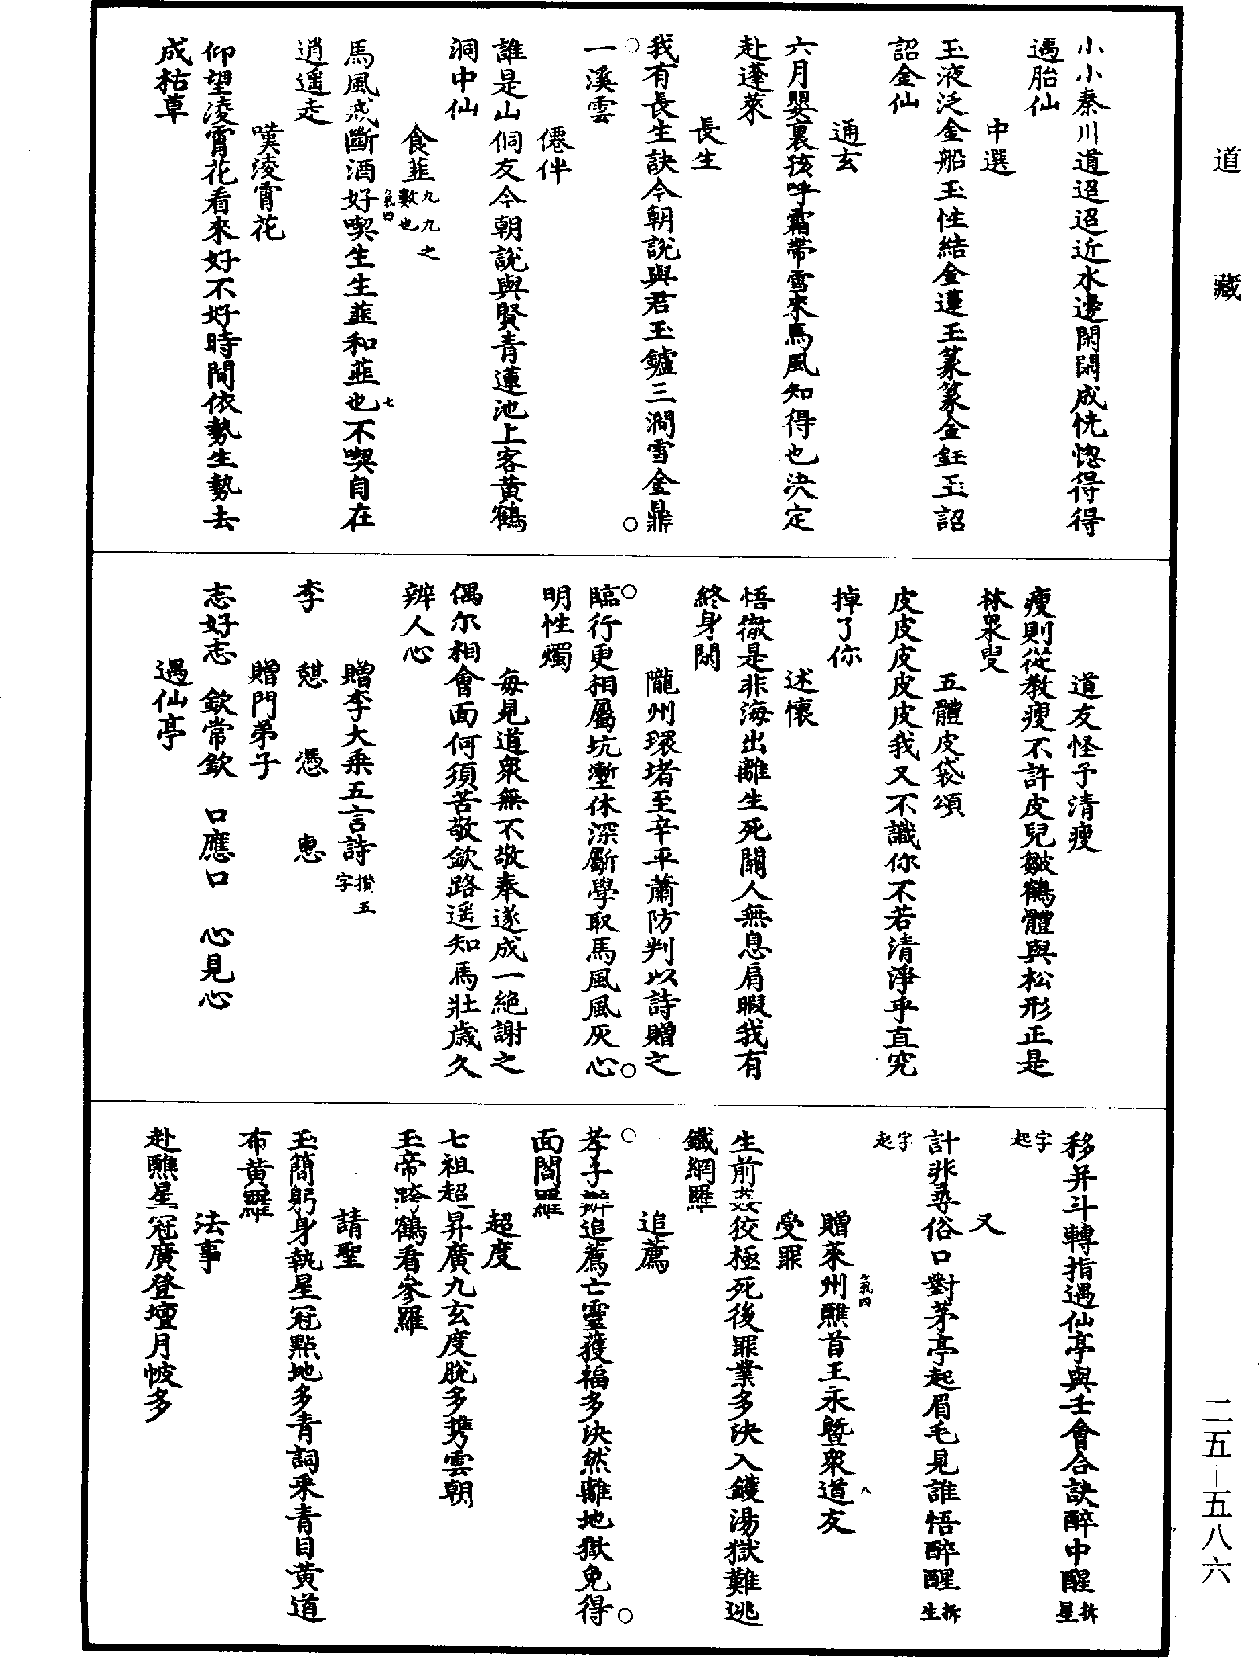 道藏
小小秦川道迢迢近水邊閑閑成恍惚得得
遇胎仙
中選
玉液泛金船玉性結金蓮玉篆篆金鈺玉詔
詔金仙
通玄
六月嬰裏孩呼霜帶雪來馬風知得也決定
赴蓬萊
長生
我有長生訣今朝說與君玉鑪三澗雪金鼎
一溪雲
僊伴
誰是山侗友今朝說與賢青蓮池上客黃鶴
洞中仙
食韮九九之數也
馬風戒斷酒好喫生生韮和韮也不喫自在
逍遥走
嘆淩霄花
仰望淩霄花看來好不好時間依勢生勢去
成枯草
道友怪予清瘦
瘦則從教瘦不許皮兒皺鶴體與松形正是
林泉叟
五體皮袋頌
皮皮皮皮皮我又不識你不若清淨乎直究
掉了你
述懷
悟徹是非海出離生死關人無息肩暇我有
終身閑
隴州環堵至辛平蕭防判以詩贈之
臨行更相屬坑壍休深斸學取馬風風灰心
明性燭
每見道衆無不敬奉遂成一絶謝之
偶尔相會面何須苦敬欽路遥知馬壯歲久
辨人心
贈李大乗五言詩攢五字
李 憇 憑 惠
贈門弟子
志好志 欽常欽 口應口 心見心
遇仙亭
移并斗轉指遇仙亭與壬會合訣醉中醒拆星
字起
又
計非尋俗口對茅亭起眉毛見誰悟醉醒拆生
字起
贈萊州醮首王永曁衆道友
受罪
生前姦狡極死後罪業多決入鑊湯獄難逃
鐵網羅
追薦
孝子辦追薦亡靈獲福多決然離地獄免得
面閻羅
超度
七祖超昇廣九玄度脫多携雲朝
玉帝跨鶴看參羅
請聖
玉簡躬身執星冠㸃地多青詞釆青目黃道
布黃羅
法事
赴醮星冠廣登壇月帔多
二五-五八六